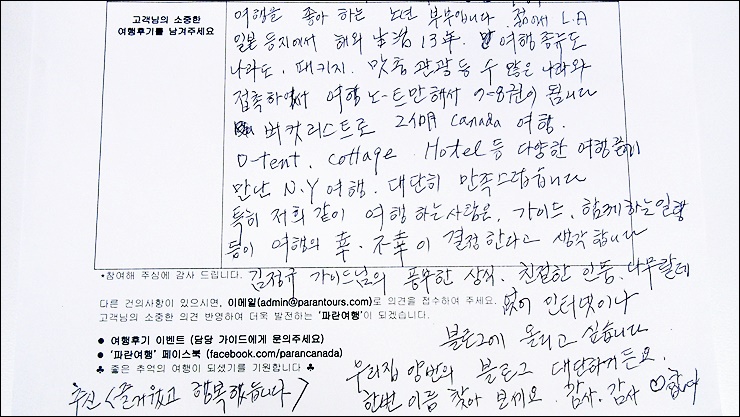 고객님의 소중한
여행후기를 남겨주세요
여행을 좋아 하는 노년 부부입니다. 젊어서 L.A
일본 등지에서 해외 생활 13年. 여행 종류도
나라도, 패키지. 맞춤 관광 등 수 많은 나라와
접촉하여서 여행 노-트만 해서 7-8권이 됩니다
버컷리스트로 Canada 여행.
O-tent, cottage. Hotel 등 다양한 여행 끝에
만난 N.Y 여행. 대단히 만족스럽습니다
특히 저희 같이 여행 하는 사람은, 가이드, 함께 하는 일행
등이 여행의 幸. 不幸이 결정 한다고 생각 합니다
*참여해 주심에 감사 드립니다.
김정규 가이드님의 풍부한 상식, 친절한 인품, 나무랄데
없어 인터넷이나
다른 건의사항이 있으시면, 이메일(admin@parantours.com)로 의견을 접수하여 주세요.
고객님의 소중한 의견 반영하여 더욱 발전하는 '파란여행'이 되겠습니다.
블로그에 올리고 싶습니다
● 여행후기 이벤트 (담당 가이드에게 문의주세요)
● '파란여행' 페이스북 (facebook.com/parancanada)
♣ 좋은 추억의 여행이 되셨기를 기원합니다 ♣
우리집 양반의 블로그 대단하거든요.
한번 이름 찾아 보세요. 감사. 감사 ♡
추신 <즐거웠고 행복했습니다>